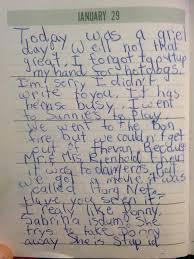 JANUARY 29
Today was a great
day well not that
great, I forgot to put up
my hand for hotdogs.
I'm sorry I didn't
write to you. It has
been so busy. I went
to Sunnies to Play
we went to the bon
fire but we couldn't get
out Thevan Because
Mr & Mrs Reinhold thout
it was to dangerous. But
we got a movie it was
called Mong Net.
Have you seen it?
I really like Donny
Sabrina is dum. She
trys to take Donny
away She is stupid